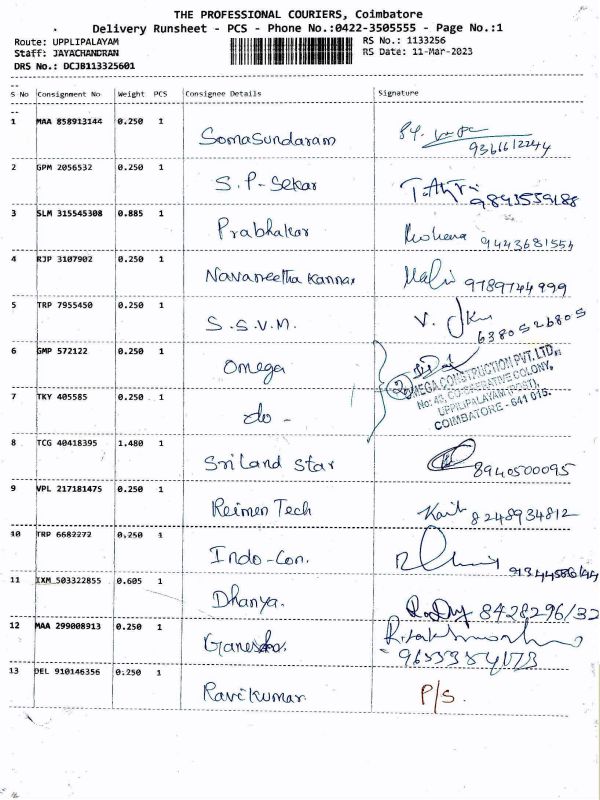 THE PROFESSIONAL COURIERS, Coimbatore
Delivery Runsheet - PCS - Phone No.:0422-3505555 - Page No.:1
Route: UPPLIPALAYAM RS No.: 1133256
Staff: JAYACHANDRAN RS Date: 11-Mar-2023
DRS No.: DCJB113325601
S No Consignment No Weight PCS Consignee Details Signature
1 MAA 858913144 0.250 1 Somasundaram
9366612244
2 GPM 2056532 0.250 1 S.P-Sekar
9841559188
3 SLM 315545308 0.885 1 Prabhakar Mohana 9443681554
4 RJP 3107902 0.250 1 Navaneetha Kannan 9789744999
5 TRP 7955450 0.250 1 S.S.V.M. V.
6380526805
6 GMP 572122 0.250 1 Omega 2
OMEGA CONSTRUCTION PVT. LTD.,
No: 43, CO-OPERATIVE COLONY,
7 TKY 405585 0.250 1 do - UPPILIPALAYAM (POST),
COIMBATORE - 641 015.
8 TCG 40418395 1.480 1 Sriland Star 8940500095
9 VPL 217181475 0.250 1 Reimen Tech 8248934812
10 TRP 6682272 0.250 1 Indo-Con.
11 IXM 503322855 0.605 1 Dhanya. 8428296132
12 MAA 299008913 0.250 1 Ganesh
13 DEL 910146356 0.250 1 Ravikumar P/S.